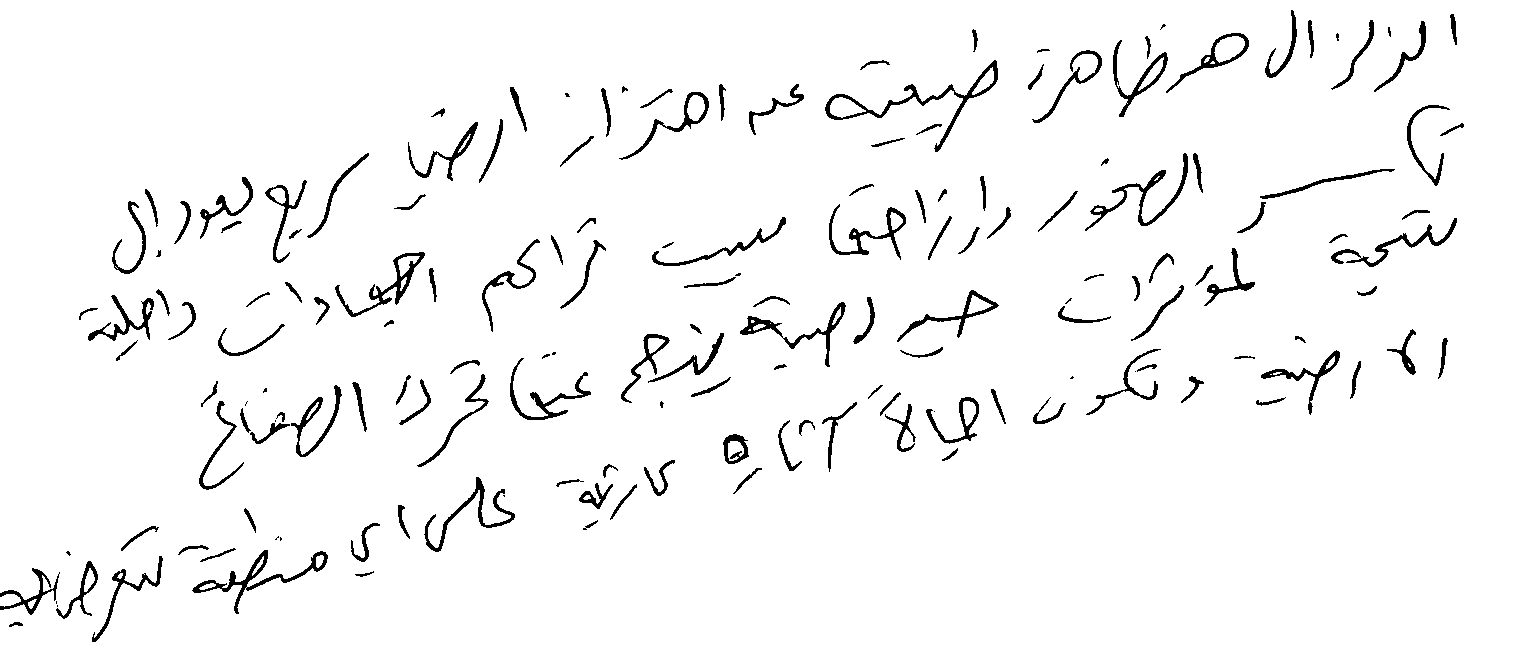 الزلزال هو ظاهرة طبيعية عن اهتزاز ارضي سريع يعود الى
تكسر الصخور وازاحتها بسبب تراكم اجهادات داخلية
نتيجة لمؤثرات جيولوجية ينجم عنها تحرك الصفائح
الارضية وتكون احيالاً آثاره كارثية على اي منطقة تتعرض له